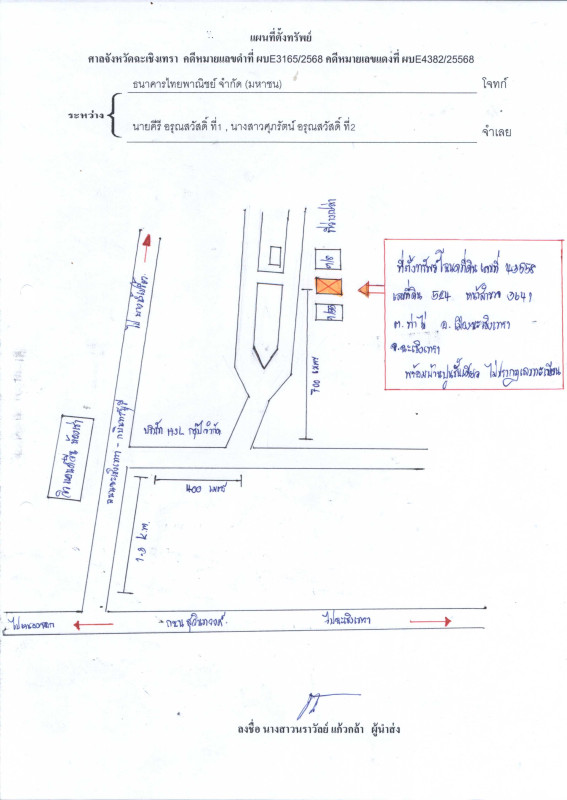 แผนที่ตั้งทรัพย์
ศาลจังหวัดฉะเชิงเทรา คดีหมายเลขดำที่ ผบE3165/2568 คดีหมายเลขแดงที่ ผบE4382/25568
ธนาคารไทยพาณิชย์ จำกัด (มหาชน) โจทก์
ระหว่าง
นายคีรี อรุณสวัสดิ์ ที่1 , นางสาวศุภรัตน์ อรุณสวัสดิ์ ที่2 จำเลย
ที่ตั้งทรัพย์ โฉนดที่ดิน เลขที่ 43558
เลขที่ดิน 524 หน้าสำรวจ 3641
ต.ท่าไข่ อ.เมืองฉะเชิงเทรา
จ.ฉะเชิงเทรา
พร้อมบ้านปูนชั้นเดียว ไม่ปรากฏเลขทะเบียน
700 เมตร
บริษัท HJL กรุ๊ป จำกัด
ถนนฉะเชิงเทรา - กบินทร์บุรี
400 เมตร
1.3 k.m.
ถนนสุวินทวงศ์
ไปฉะเชิงเทรา
ลงชื่อ นางสาวนราวัลย์ แก้วกล้า ผู้นำส่ง